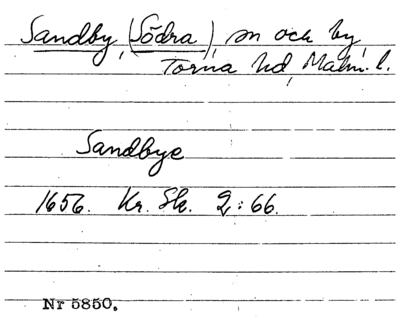 Sandby, (Södra), sn och by,
Torna hd, Malm. l.
Sandbye
1656. Kr. Sk. 2:66.
Nr 5850.